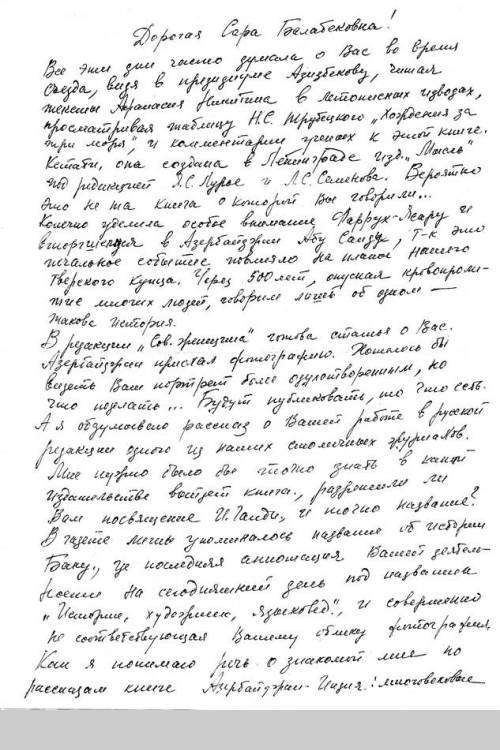 Дорогая Сара Балабековна!
Все эти дни часто думала о Вас во время
съезда, видя в президиуме Азизбекову, читая
тексты Афанасия Никитина в летописных изводах,
просматривая таблицу Н.С. Трубецкого „Хождения за
три моря", и комментарии ученых к этой книге.
Кстати, она создана в Ленинграде изд. „Мысль"
под редакцией Я.С. Лурье и Л.С. Семенова. Вероятно
это не та книга о которой Вы говорили...
Конечно уделила особое внимание Фаррух-Ясару и
вторгшемуся в Азербайджан Абу Саиду, т-к это
печальное событие повлияло на планы нашего
тверского купца. Через 500 лет, опуская кровопроли-
тие многих людей, говорим лишь об одном —
такова история.
В редакции „Сов. женщина" готова статья о Вас.
Азербайджан прислал фотографию. Хотелось бы
видеть Ваш портрет более одухотворенным, но
что поделать... Будут публиковать, то что есть.
А я обдумываю рассказ о Вашей работе в русской
редакции одного из наших столичных журналов.
Мне нужно было бы точно знать в каком
издательстве выйдет книга, разрешили ли
Вам посвящение И. Ганди, и точно название?
В газете лишь упоминалось название об истории
Баку, где последняя аннотация Вашей деятель-
ности на сегодняшний день под названием
„Историк, художник, языковед", и совершенно
не соответствующая Вашему облику фотография.
Как я понимаю речь о знакомой мне по
рассказам книге Азербайджан-Индия: многовековые